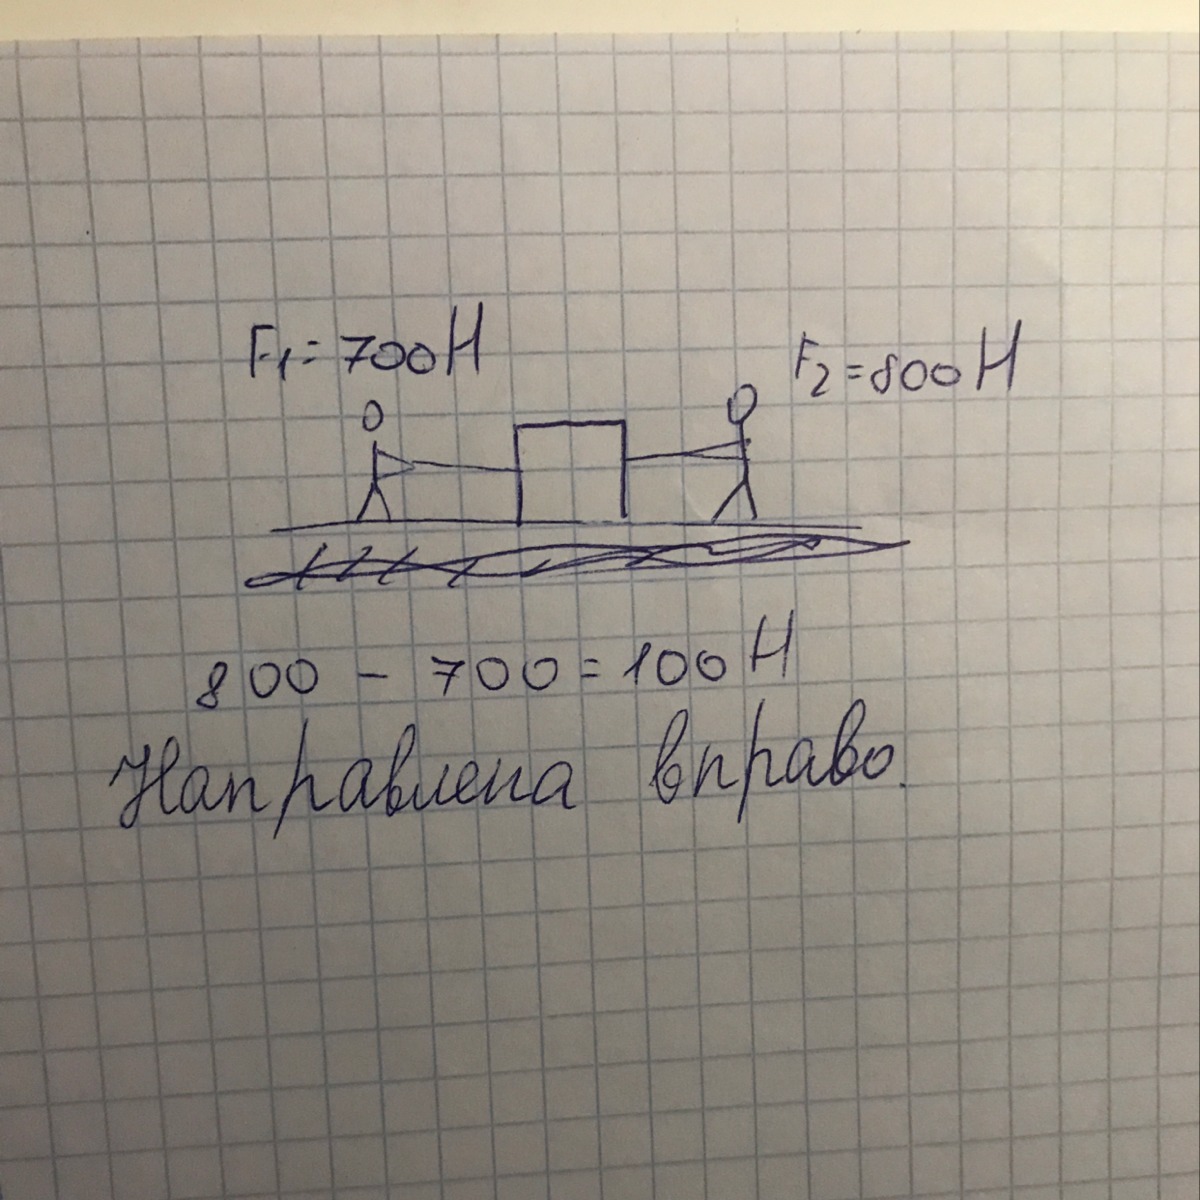 F1=700H F2=800H
800 - 700=100H
Направлена вправо.